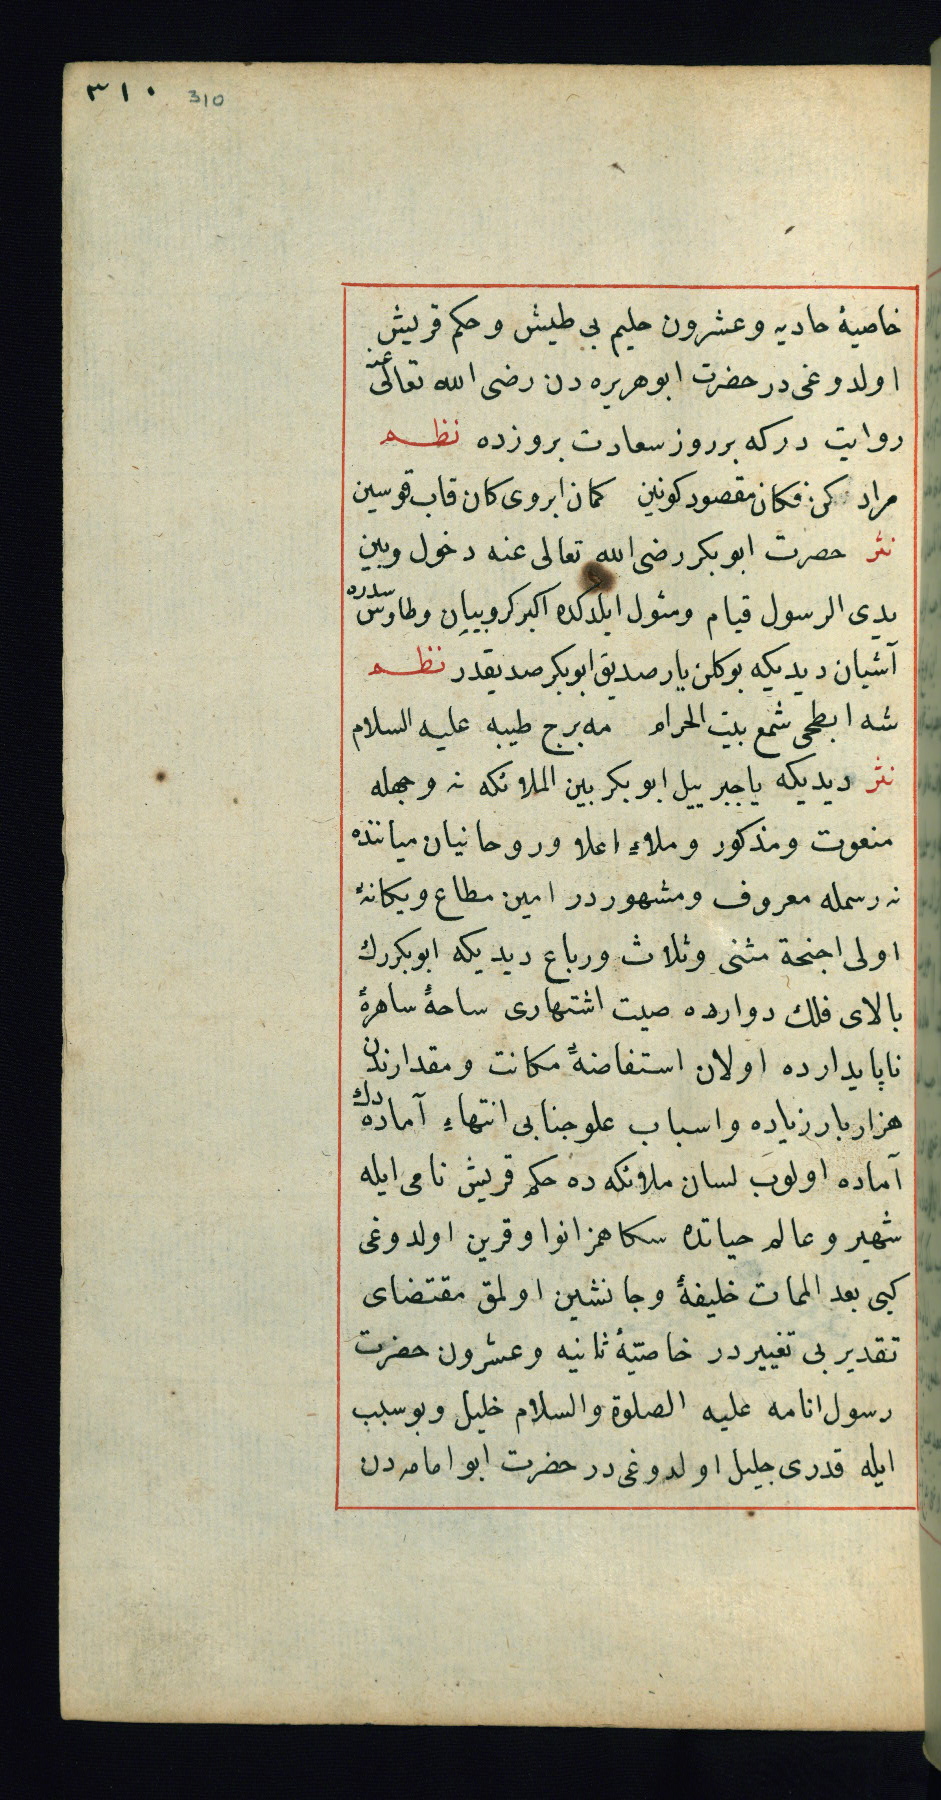 ٣١٠ 310
خاصیهٔ حادیه وعشرون حلیم بی طیش و حکم قریش
اولدوغی در حضرت ابوهریره دن رضی الله تعالی عنه
روایت درکه برروز سعادت بروزده نظم
مراد کن فکان مقصود کونین کمان ابروی کان قاب قوسین
نثر حضرت ابوبکر رضی الله تعالی عنه دخول وبین
یدی الرسول قیام ومثول ایلدکده اکبر کروبییان وطاوس سدره
آشیان دیدیکه بوکلن یار صدیق ابوبکر صدیقدر نظم
شه ابطحی شمع بیت الحرام مه برج طیبه علیه السلام
نثر دیدیکه یاجبرییل ابوبکر بین الملائکه نه وجهله
منعوت ومذکور وملاء اعلا وروحانیان میاننده
نه رسمله معروف ومشهوردر امین مطاع ویکانهٔ
اولی اجنحة مثنی وثلاث ورباع دیدیکه ابوبکرك
بالای فلك دوارده صیت اشتهاری ساحهٔ ساهرهٔ
ناپایدارده اولان استفاضهٔ مکانت ومقدارندن
هزار بار زیاده واسباب علو جنابی انتهاء آماده دك
آماده اولوب لسان ملائکه ده حکم قریش نامی ایله
شهیر وعالم حیاتده سکا همزانو وقرین اولدوغی
کبی بعد الممات خلیفهٔ وجانشین اولمق مقتضای
تقدیر بی تغییردر خاصتیهٔ ثانیه وعشرون حضرت
رسول انامه علیه الصلوة والسلام خلیل وبوسبب
ایله قدری جلیل اولدوغی در حضرت ابوامامه دن